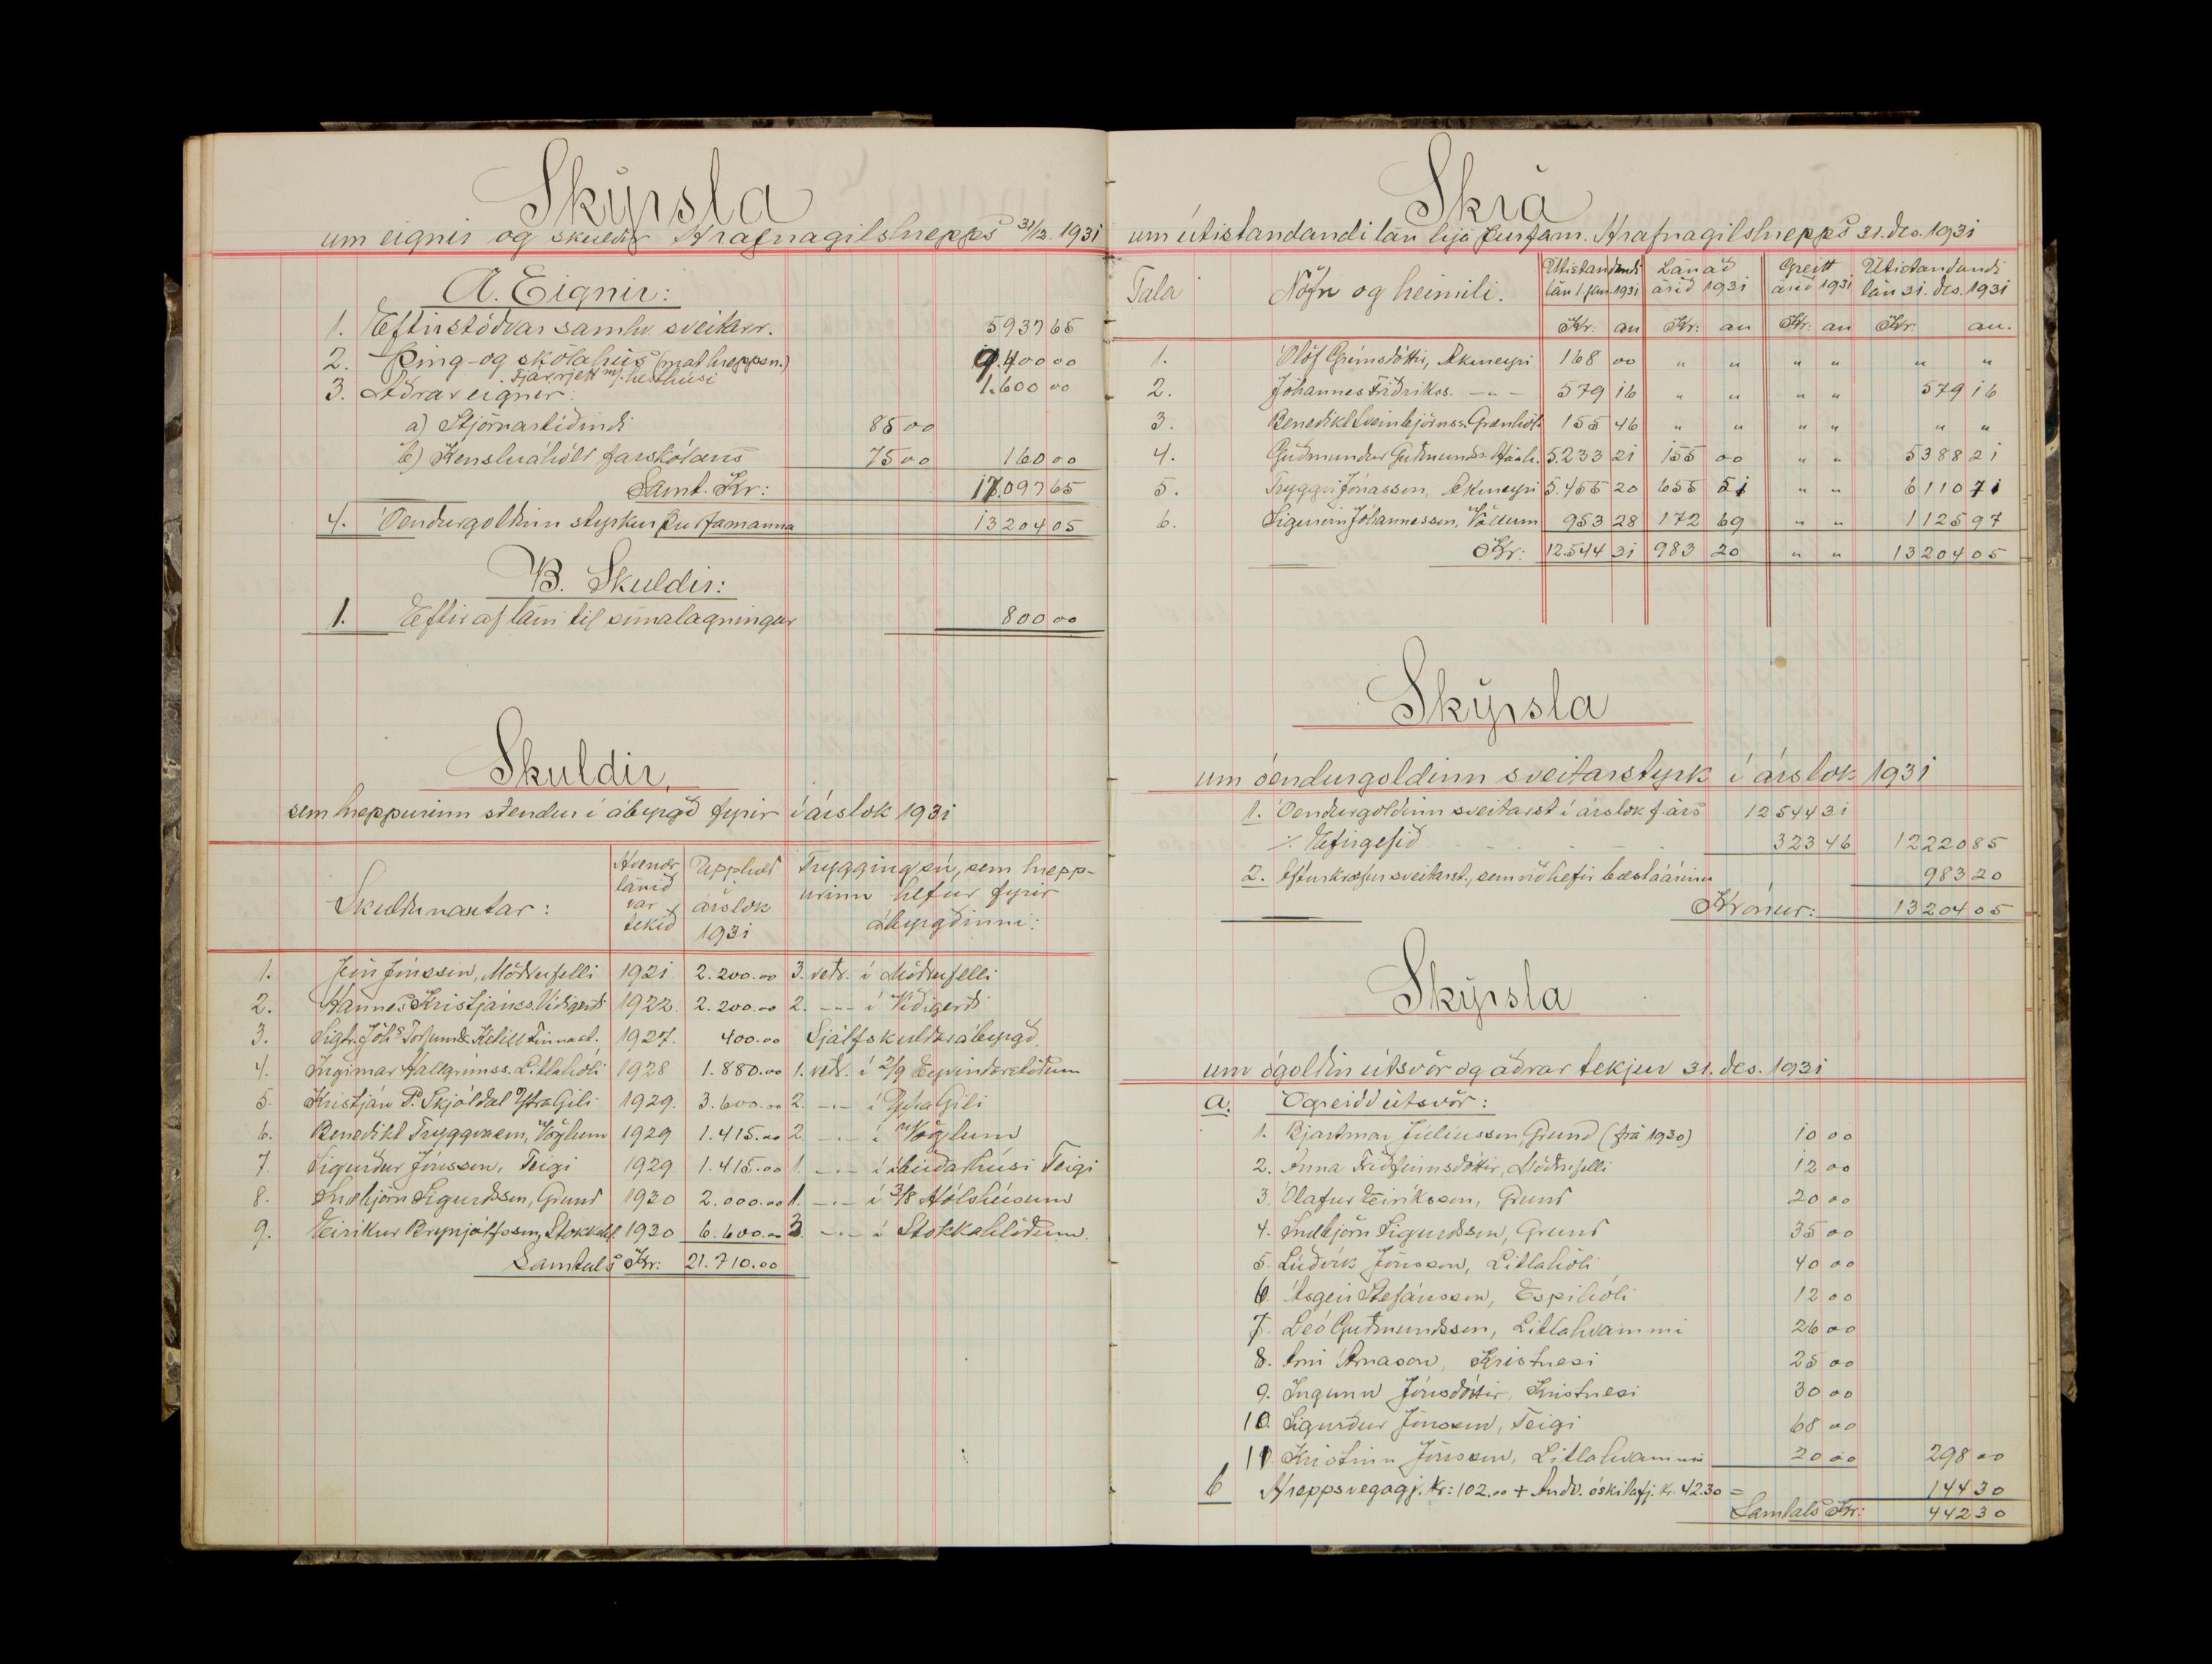 Skýrsla
um eignir og skuldir Hrafnagilshrepps 31/12. 1931
A. Eignir:
1. Eftirstöðvar samkv. sveitarr. 5937 65
2. Þing- og skólahús (mat hreppsn.) 9.400 00
Fjárrjett m/ hesthúsi
3. Aðrar eignir: 1.600 00
a) Stjórnartíðindi 85 00
b) Kensluáhöld farskólans 75 00 160 00
Samt. Kr: 17.097 65
4. Óendurgoldinn styrkur þurfamanna 13204 05
B. Skuldir:
1. Eftir af láni til símalagningar 800 00
Skuldir,
sem hreppurinn stendur í ábyrgð fyrir í árslok 1931
Skuldunautar: Hvenær lánið var tekið Upphæð í árslok 1931 Trygging sú, sem hreppurinn hefur fyrir ábyrgðinni:
1. Jón Jónsson, Möðrufelli 1921 2.200.00 3. veðr. í Möðrufelli
2. Hannes Kristjánss. Víðigerði 1922 2.200.00 2. -"- í Víðigerði
3. Sigtr. Jóh.s Torfum & Ketill 1927. 400.00 Sjálfskuldarábyrgð.
4. Ingimar Hallgrímss. Litlahóli 1928 1.880.00 1. veðr. í 2/9 Eyvindarstöðum
5. Kristján P. Skjóldal Ytra Gili 1929. 3.600.00 2. -"- í Ytra Gili
6. Benedikt Tryggvason, Vöglum 1929 1.415.00 2. -"- í Vöglum
7. Sigurður Jónsson, Teigi 1929 1.415.00 1. -"- í íbúðarhúsi Teigi
8. Snæbjörn Sigurðsson, Grund 1930 2.000.00 1. -"- í 3/8 Hólshúsum
9. Eiríkur Brynjólfsson, Stokkahl. 1930 6.600.00 3. -"- í Stokkahlöðum.
Samtals Kr: 21.710.00
Skrá
um útistandandi lán hjá þurfam. Hrafnagilshrepps 31. des. 1931
Tala Nöfn og heimili. Útistandandi lán 1. jan. 1931 Lánað árið 1931 Greitt árið 1931 Útistandandi lán 31. des. 1931
Kr: au Kr: au Kr: au Kr: au.
1. Ólöf Grímsdóttir, Akureyri 168 00 " " " " " "
2. Jóhannes Friðrikss. -"- 579 16 " " " " 579 16
3. Benedikt Sveinbjörnss. Grænhól. 155 46 " " " " " "
4. Guðmundur Guðmundss. 5.233 21 155 00 " " 5388 21
5. Tryggvi Jónasson, Akureyri 5.455 20 655 51 " " 6110 71
6. Sigurvin Jóhannesson, Völlum 953 28 172 69 " " 1125 97
Kr: 12.544 31 983 20 " " 13204 05
Skýrsla
um óendurgoldinn sveitarstyrk í árslok 1931
1. Óendurgoldinn sveitarst. í árslok f. árs 12544 31
÷ Eftirgefið 323 46 12220 85
2. Afturkræfur sveitarst., sem við hefir bæst á árinu 983 20
Krónur: 13204 05
Skýrsla
um ógoldin útsvör og aðrar tekjur 31. des. 1931
a. Ógreidd útsvör:
1. Bjartmar Júlíusson, Grund (frá 1930) 10 00
2. Anna Friðfinnsdóttir, Möðrufelli 12 00
3. Ólafur Eiríksson, Grund 20 00
4. Snæbjörn Sigurðsson, Grund 35 00
5. Lúðvík Jónsson, Litlahóli 40 00
6. Ásgeir Stefánsson, Espihóli 12 00
7. Leó Guðmundsson, Litlahvammi 26 00
8. Árni Árnason, Kristnesi 25 00
9. Ingunn Jónsdóttir, Kristnesi 30 00
10. Sigurður Jónsson, Teigi 68 00
11. Kristinn Jónsson, Litlahvammi 20 00 298 00
b Hreppsvegagj. kr: 102.00 + Andv. óskilafj. kr. 42.30 = 144 30
Samtals Kr: 442 30